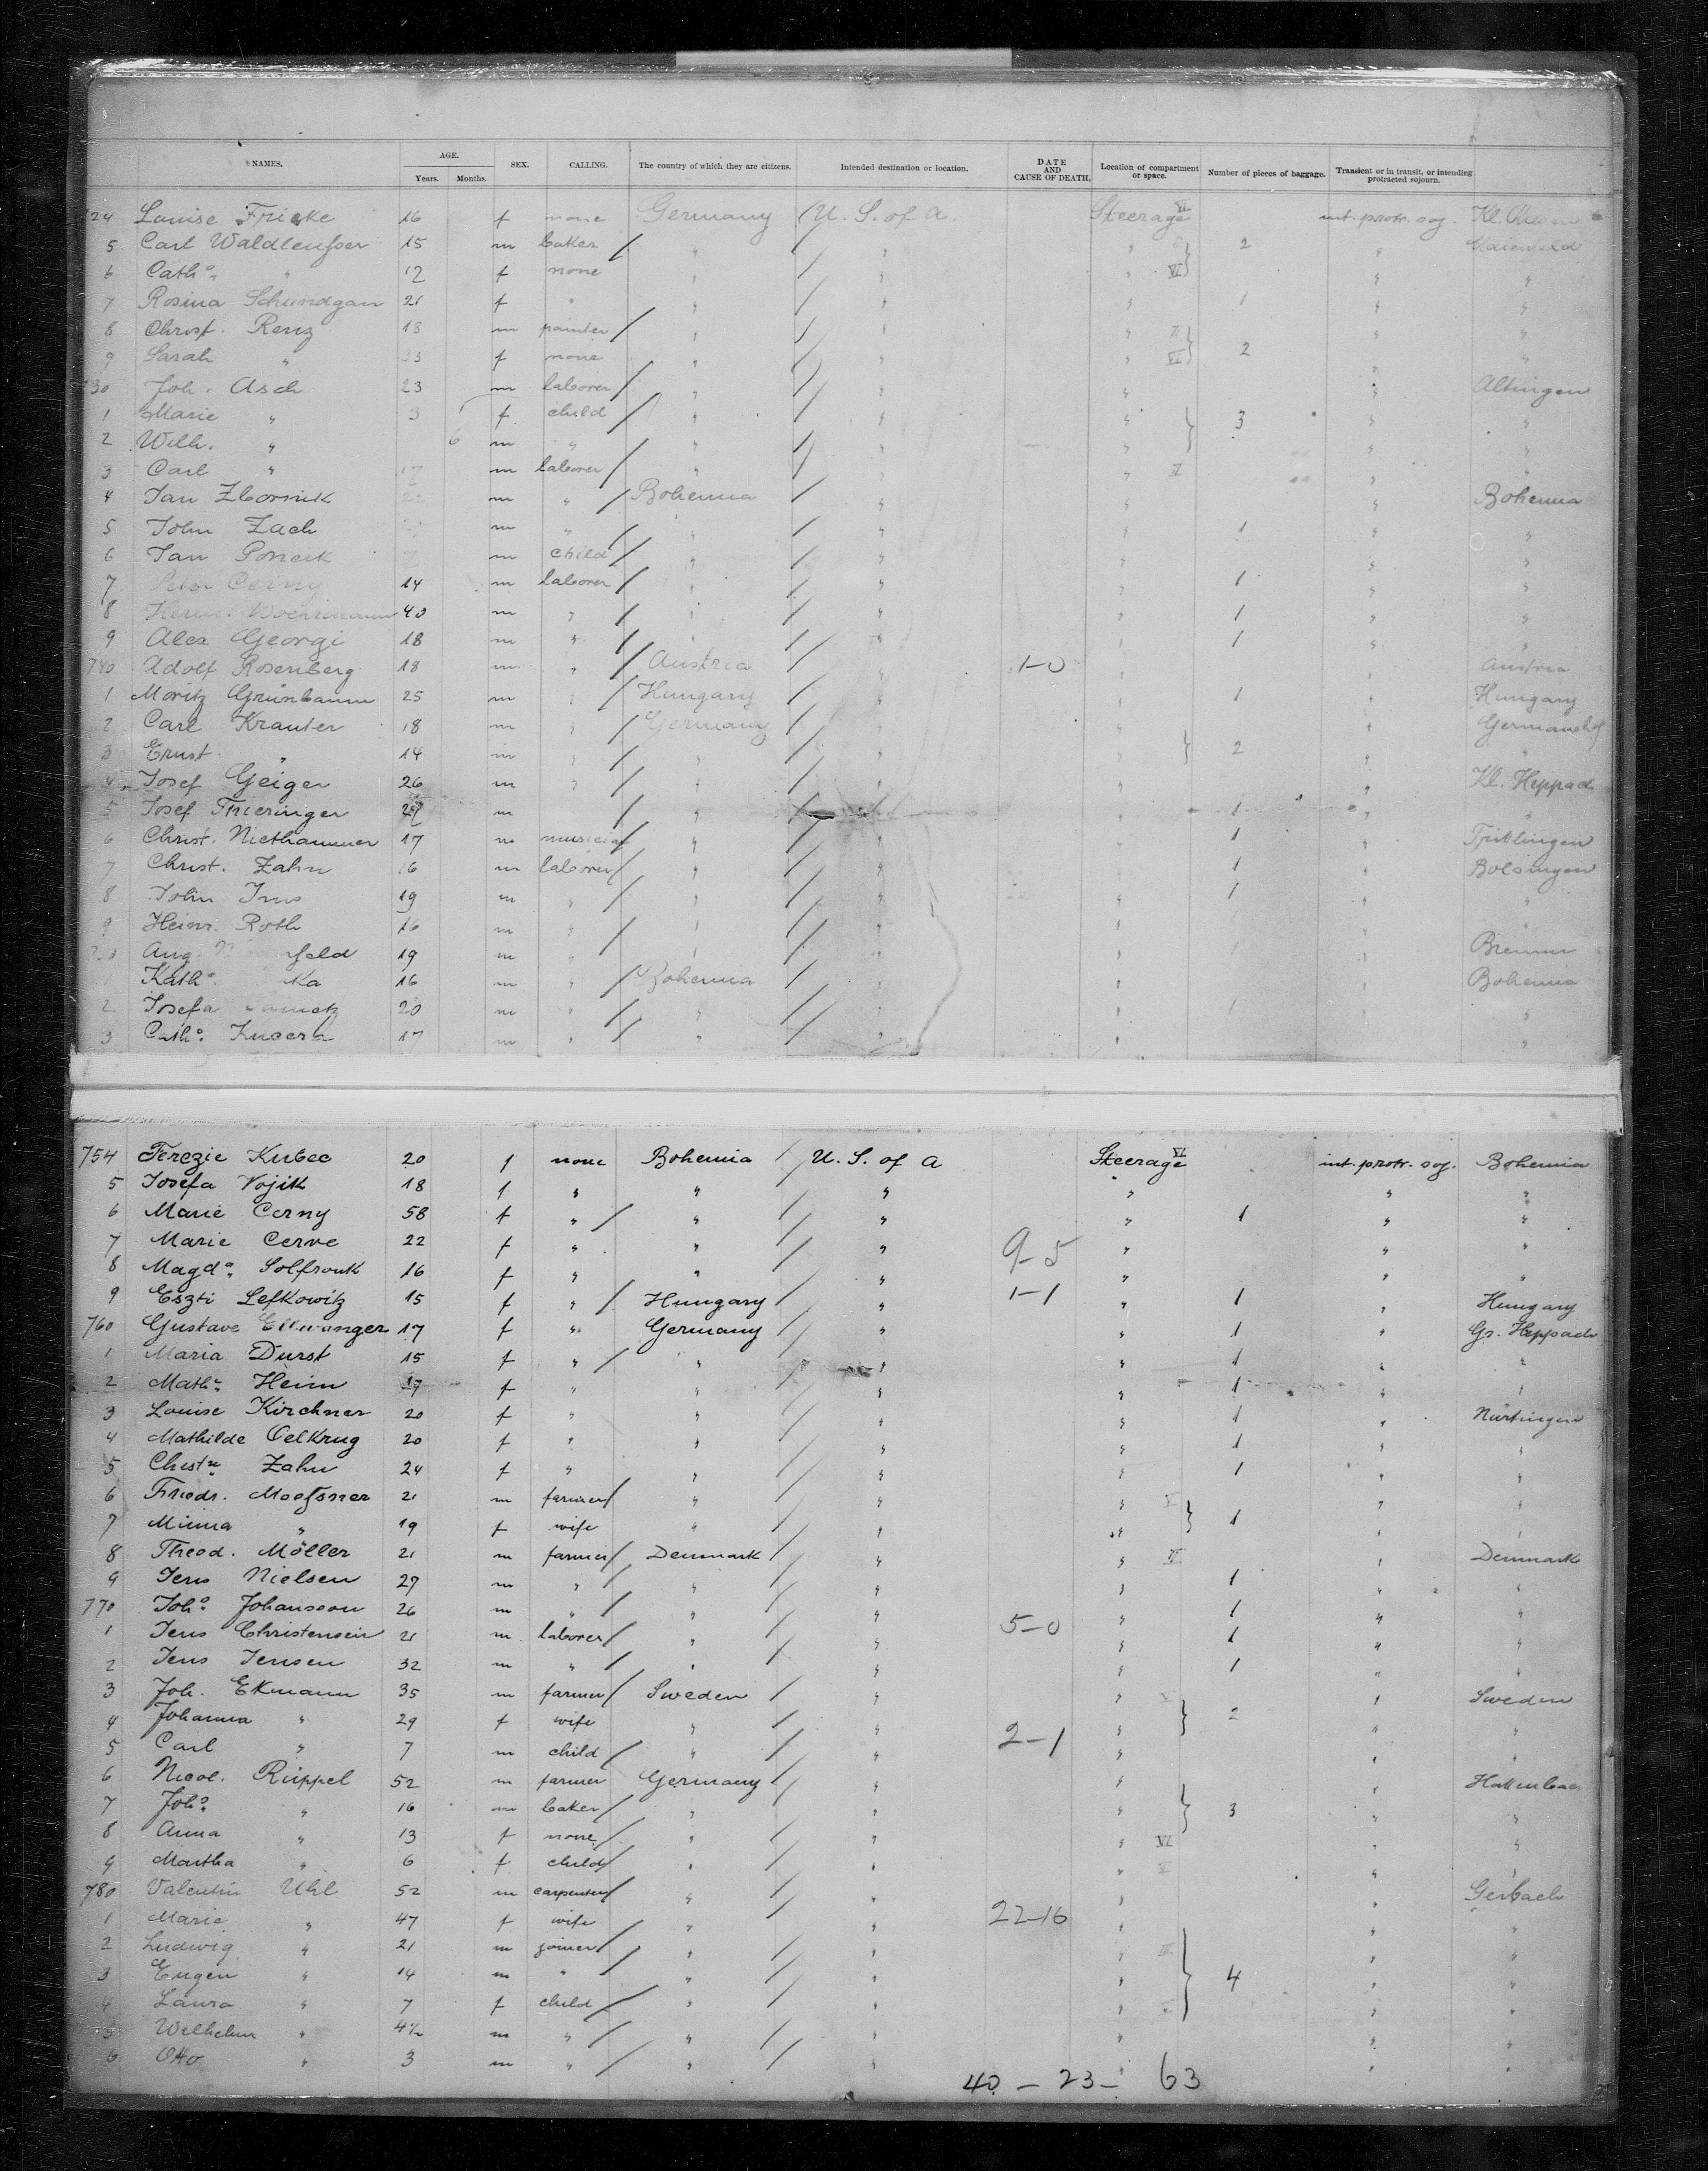 NAMES. AGE. Years. Months. SEX. CALLING. The country of which they are citizens. Intended destination or location. DATE AND CAUSE OF DEATH. Location of compartment or space. Number of pieces of baggage. Transient or in transit, or intending protracted sojourn.
724 Louise Fricke 16 f none Germany / U. S. of A. Steerage VI int. protr. soj. Kl.
5 Carl 15 m baker / " / " " } 2 "
6 Cath.a " 12 f none " / " " VI " "
7 Rosina Schundgan 21 f " " / " " 1 " "
8 Christ. Renz 18 m painter / " / " " " "
9 Sarah " f none " / " " VI } 2 " "
730 Joh. Asch 23 m laborer / " / " " " Altingen
1 Marie " 3 f child / " / " " } 3 " "
2 Wilh. " 6 m " / " / " " " "
3 Carl " 17 m laborer / " / " " II " "
4 Jan Zbornik m " / Bohemia / " " " Bohemia
5 John Zach m " / " / " " 1 " "
6 Jan m child / " / " " " "
7 Peter Cerny 14 m laborer / " / " " 1 " "
8 Herm. 40 m " / " / " " 1 " "
9 Alex Georgi 18 m " / " / " " 1 " "
740 Adolf Rosenberg 18 m " / Austria / " 1-0 " " Austria
1 Moritz Grünbaum 25 m " / Hungary / " " 1 " Hungary
2 Carl Krauter 18 m " / Germany / " " "
3 Ernst " 14 m " / " / " " } 2 " "
4 Josef Geiger 26 m " / " / " " " Kl. Heppach
5 Josef Thieringer 29 m / " / " " 1 " "
6 Christ. Niethammer 17 m musician / " / " " 1 "
7 Christ. Zahn 16 m laborer / " / " " 1 "
8 John 19 m " / " / " " 1 " "
9 Heinr. Roth 16 m " / " / " " " "
750 Aug. 19 m " / " / " " " Bremen
1 Kath.a 16 m " / Bohemia / " " " Bohemia
2 Josefa 20 m " / " / " " 1 " "
3 Cath.a Kucera 17 m " / " / " " " "
754 Terezie Kubec 20 f none Bohemia / U. S. of A Steerage VI int. protr. soj. Bohemia
5 Josefa Vojik 18 f " " / " " " "
6 Marie Cerny 58 f " / " / " " 1 " "
7 Marie Cerve 22 f " " / " 9-5 " " "
8 Magd.a Solfronk 16 f " " / " " " "
9 Eszti Lefkowitz 15 f " / Hungary / " 1-1 " 1 " Hungary
760 Gustave Ellwanger 17 f " Germany / " " 1 " Gr. Heppach
1 Maria Durst 15 f " / " / " " 1 " "
2 Math.e Heim 17 f " " / " " 1 " "
3 Louise Kirchner 20 f " " / " " 1 " Nürtingen
4 Mathilde Oelkrug 20 f " " / " " 1 " "
5 Christ.ne Zahn 24 f " " / " " 1 " "
6 Friedr. Moessner 21 m farmer / " / " " V } 1 " "
7 Minna " 19 f wife " / " " " "
8 Theod. Möller 21 m farmer / Denmark / " " II " Denmark
9 Jens Nielsen 27 m " / " / " " 1 " "
770 Joh.a Johansson 26 m " / " / " " 1 " "
1 Jens Christensen 21 m laborer / " / " 5-0 " 1 " "
2 Jens Jensen 32 m " / " / " " 1 " "
3 Joh. Ekmann 35 m farmer / Sweden / " " V } 2 " Sweden
4 Johanna " 29 f wife " / " " " "
5 Carl " 7 m child / " / " 2-1 " " "
6 Nicol. Rüppel 52 m farmer Germany / " " } 3 "
7 Joh.a " 16 m baker / " / " " " "
8 Anna " 13 f none / " / " " VI " "
9 Martha " 6 f child / " / " " V " "
780 Valentin Uhl 52 m carpenter / " / " " " Gerbach
1 Marie " 47 f wife / " / " 22-16 " " "
2 Ludwig " 21 m joiner / " / " " } 4 " "
3 Eugen " 14 m " / " / " " " "
4 Laura " 7 f child / " / " " V " "
5 Wilhelm " 4½ m " / " / " " " "
6 Otto " 3 m " / " / " " " "
40 - 23 - 63